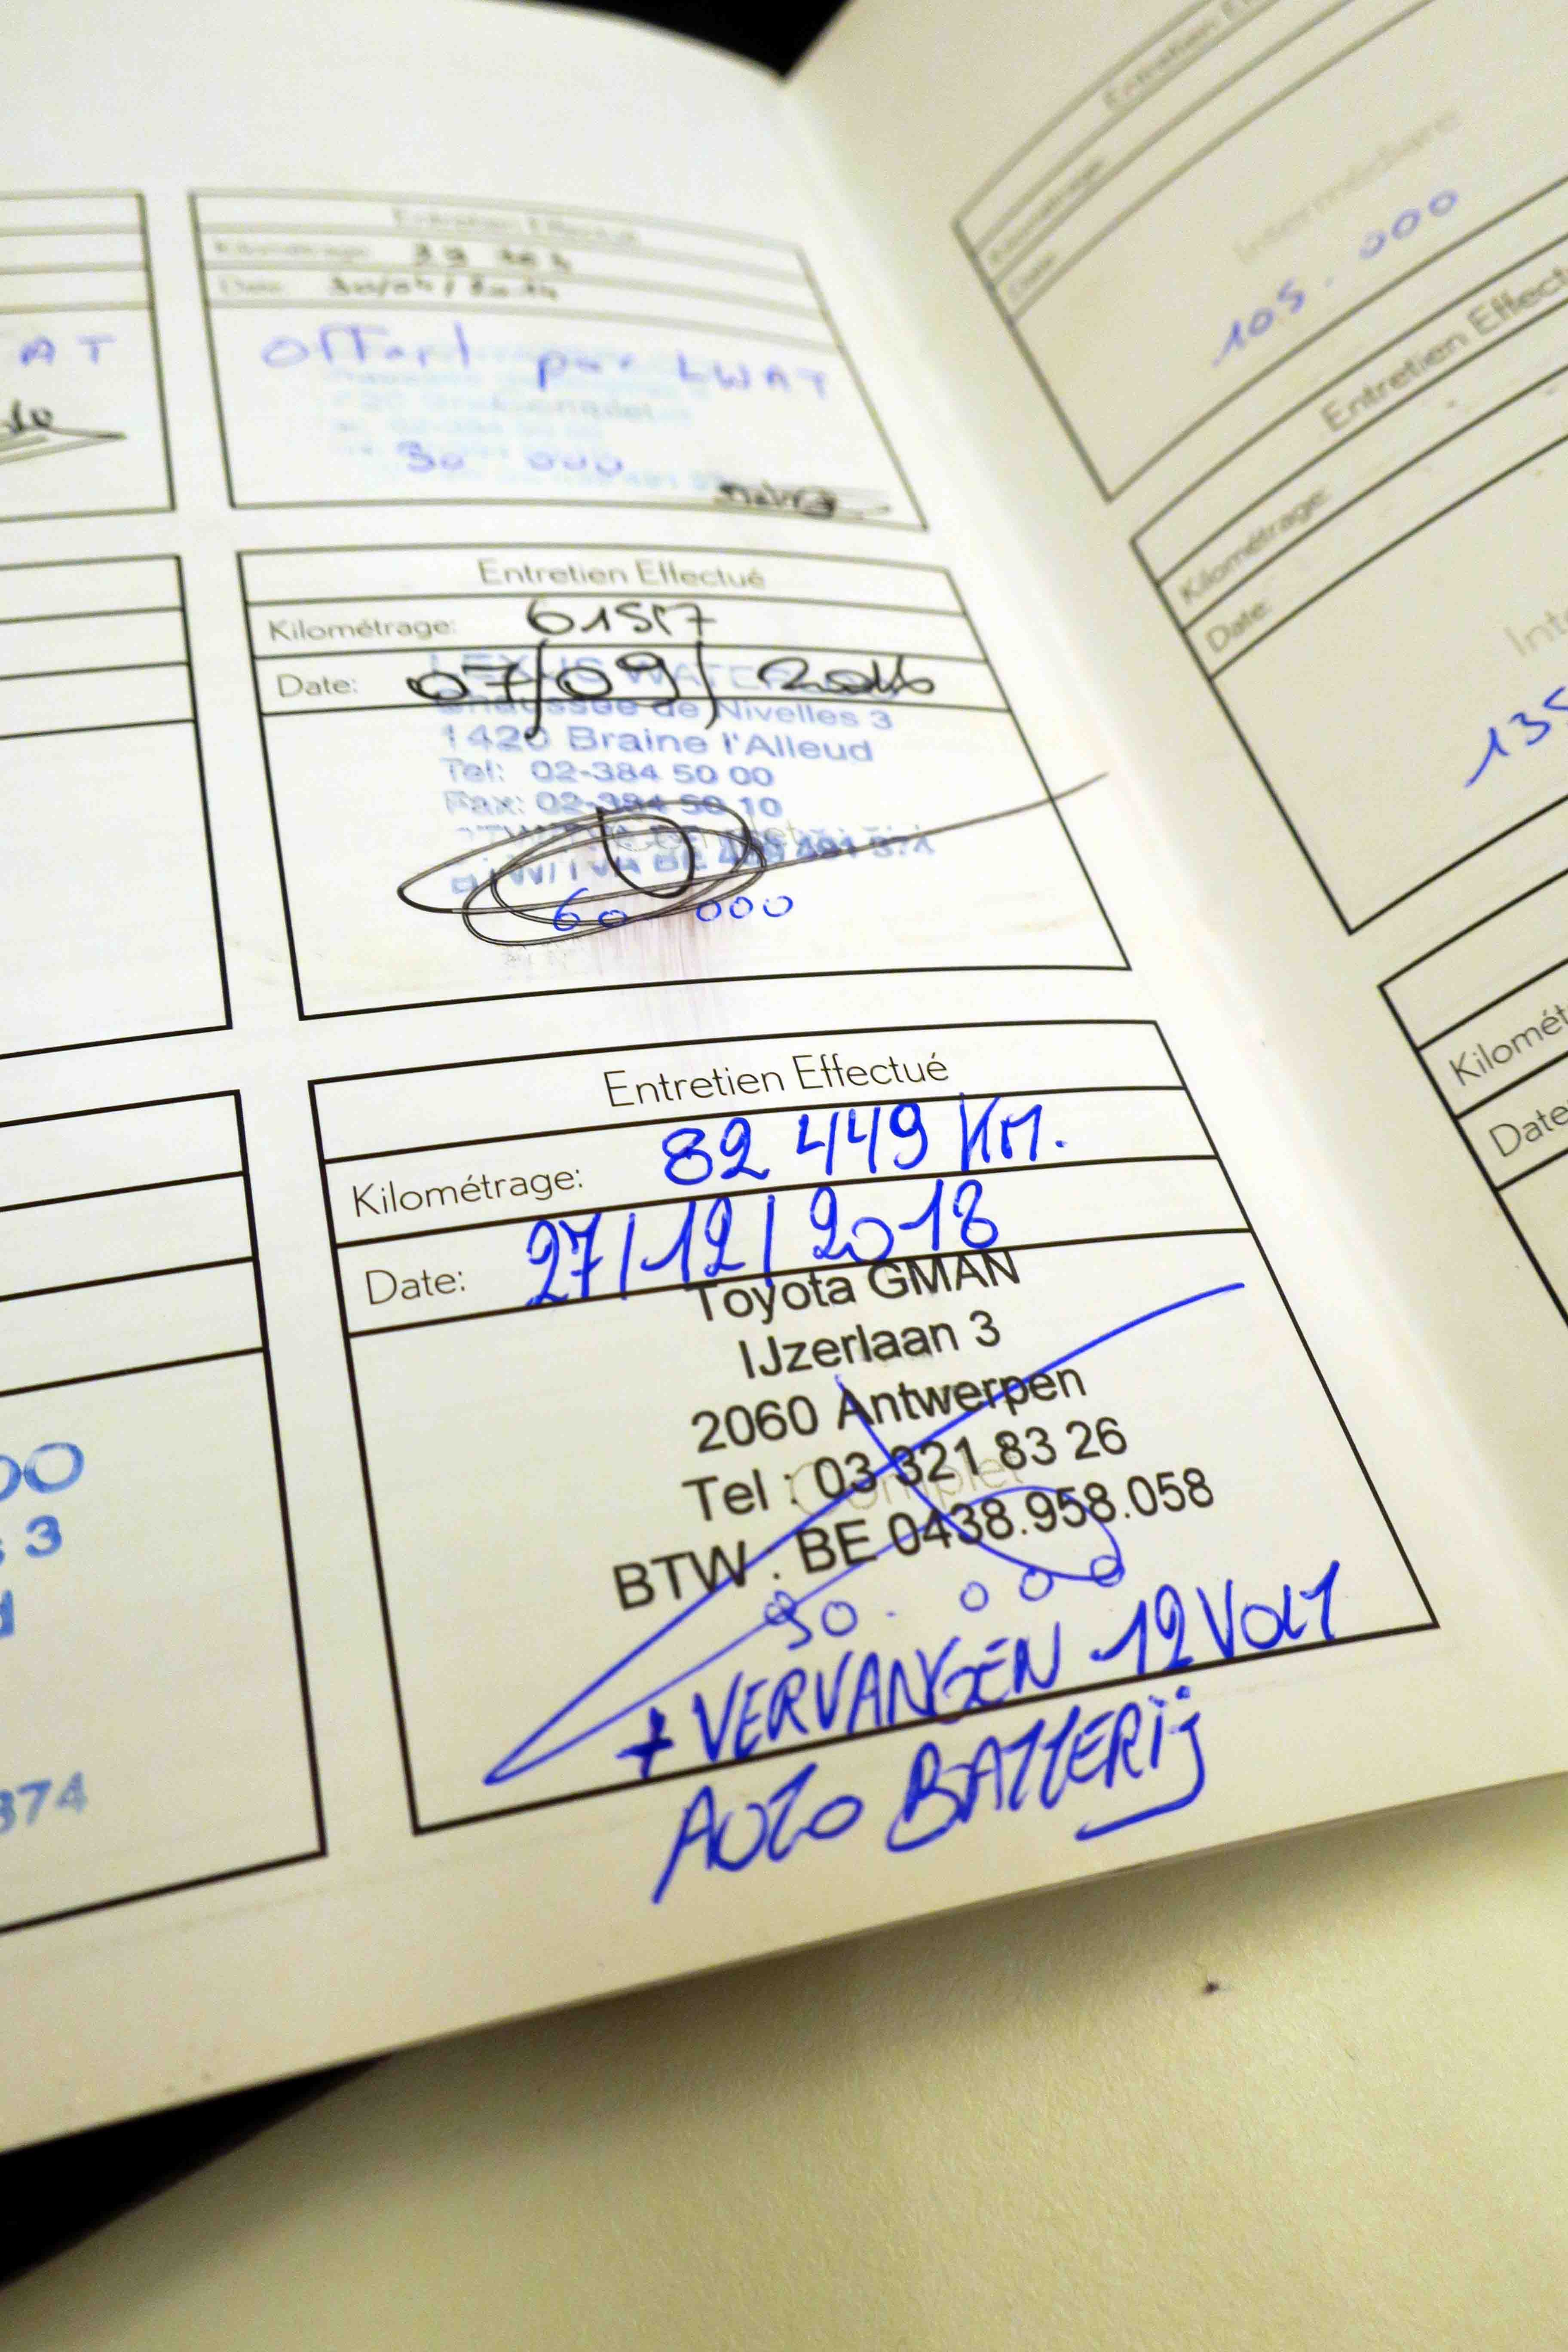 AT
Entretien Effectué
Kilométrage:
Date:
offert par LWAT
30 000
Entretien Effectué
Kilométrage: 61517
Date: 07/09/2016
LEXUS
Chaussée de Nivelles 3
1420 Braine l'Alleud
Tel: 02-384 50 00
Fax: 02-384 50 10
60 000
Entretien Effectué
Kilométrage: 82 449 KM.
Date: 27/12/2018
Toyota GMAN
IJzerlaan 3
2060 Antwerpen
Tel : 03 321 83 26
Complet
BTW : BE 0438.958.058
90.000
+ VERVANGEN 12 VOLT
AUTO BATTERIJ
3
374
Entretien
Kilométrage:
Date:
Intermédiaire
105.000
Entretien Effect
Kilométrage:
Date:
Inte
135
Kilomét
Date: